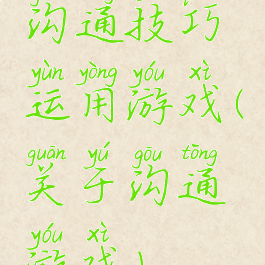 沟通技巧
yùn yòng yóu xì
运用游戏(
guān yú gōu tōng
关于沟通
yóu xì
游戏)